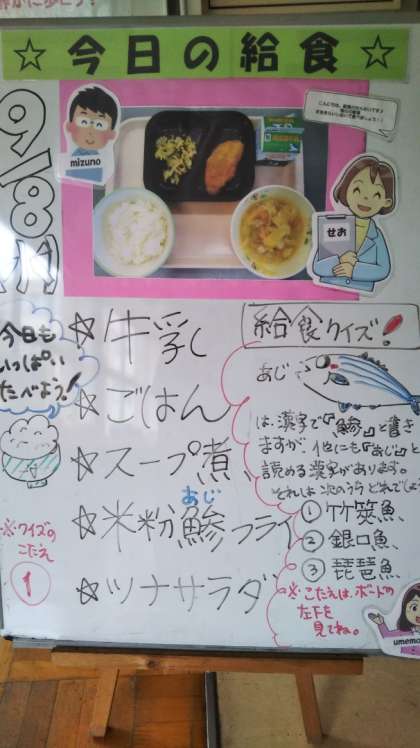 ☆ 今日の給食 ☆
mizuno
せお
9/8(月)
今日も
いっぱい
たべよう!
☆牛乳
☆ごはん
☆スープ煮
あじ
☆米粉鯵フライ
☆ツナサラダ
※クイズの
こたえ
①
給食クイズ!
あじ
は、漢字で『鯵』と書き
ますが、他にも『あじ』と
読める漢字があります。
それは次のうちどれでしょ
①竹筴魚
②銀口魚
③琵琶魚
※こたえは、ボードの
左下を
見てね。
umemo